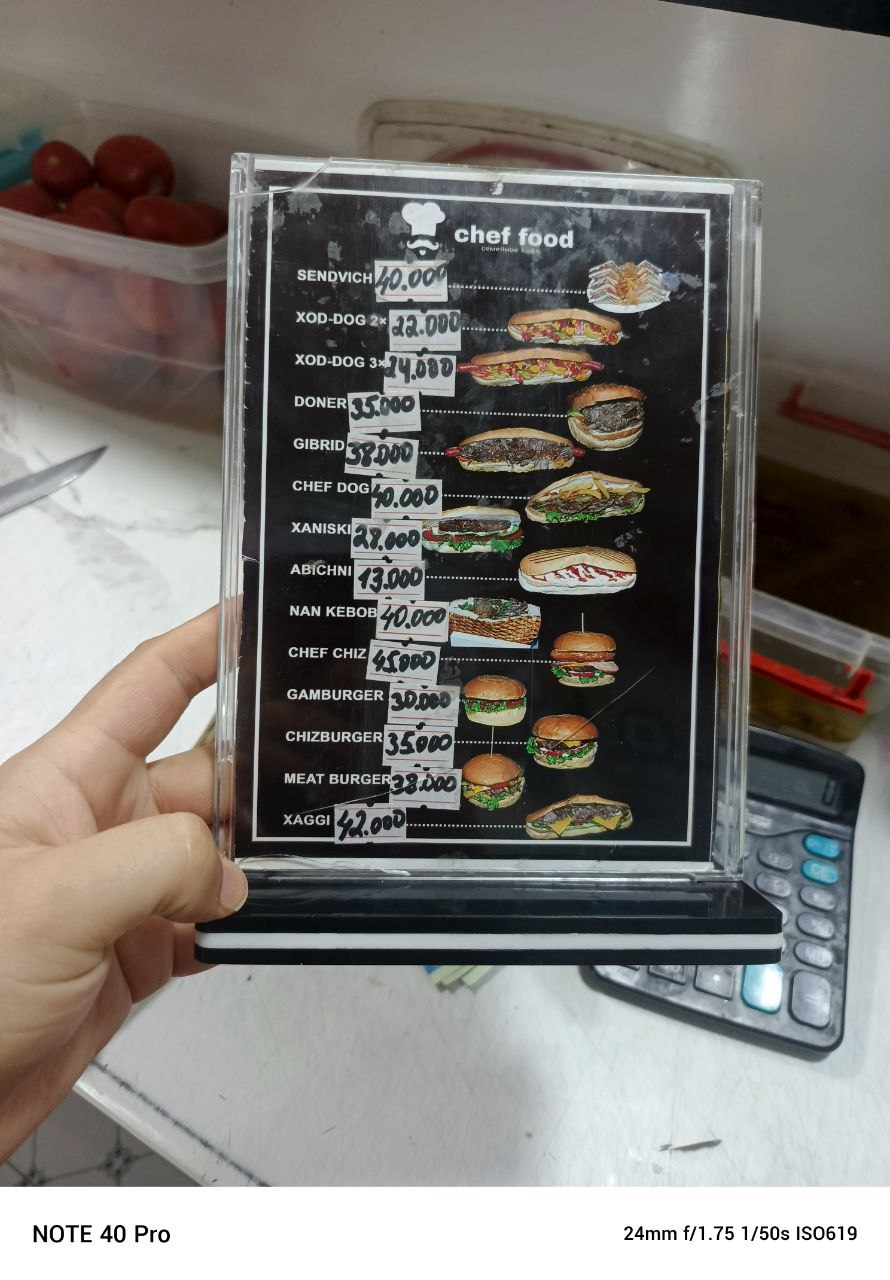 chef food
семейное кафе
SENDVICH 40.000
XOD-DOG 2x 22.000
XOD-DOG 3x 24.000
DONER 35.000
GIBRID 38.000
CHEF DOG 40.000
XANISKI 28.000
ABICHNI 13.000
NAN KEBOB 40.000
CHEF CHIZ 45.000
GAMBURGER 30.000
CHIZBURGER 35.000
MEAT BURGER 38.000
XAGGI 42.000
CE
MU
NOTE 40 Pro
24mm f/1.75 1/50s ISO619